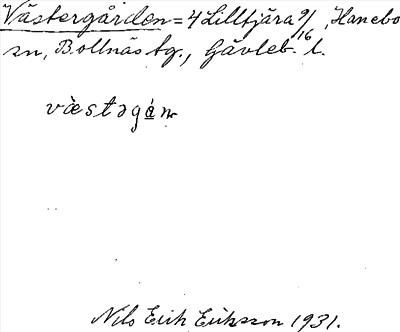 Västergården = 4 Lilltjära 9/16, Hanebo
sn, Bollnäs tg., Gävleb. l.
væ̀stəgá̱ɳ
Nils Erik Eriksson 1931.